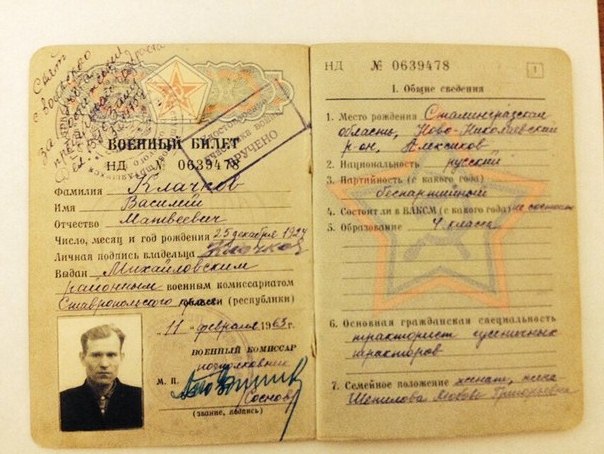 ВОЕННЫЙ БИЛЕТ
НД № 0639478
Фамилия Клачков
Имя Василий
Отчество Матвеевич
Число, месяц и год рождения 25 декабря 1924
Личная подпись владельца Клочков
Выдан Михайловским
районным военным комиссариатом
Ставропольского края (республики)
11 февраля 1963 г.
ВОЕННЫЙ КОМИССАР
подполковник
М. П.
(Соснов)
(звание, подпись)
Удостоверение
участника войны
ВРУЧЕНО
НД № 0639478
1
I. Общие сведения
1. Место рождения Сталинградская
область, Ново-Николаевский
р-он, Алексиков
2. Национальность русский
3. Партийность (с какого года)
беспартийный
4. Состоит ли в ВЛКСМ (с какого года) не состоит
5. Образование 4 класса
6. Основная гражданская специальность
тракторист гусеничных
тракторов
7. Семейное положение женат, жена
Шепилова Григорьевна